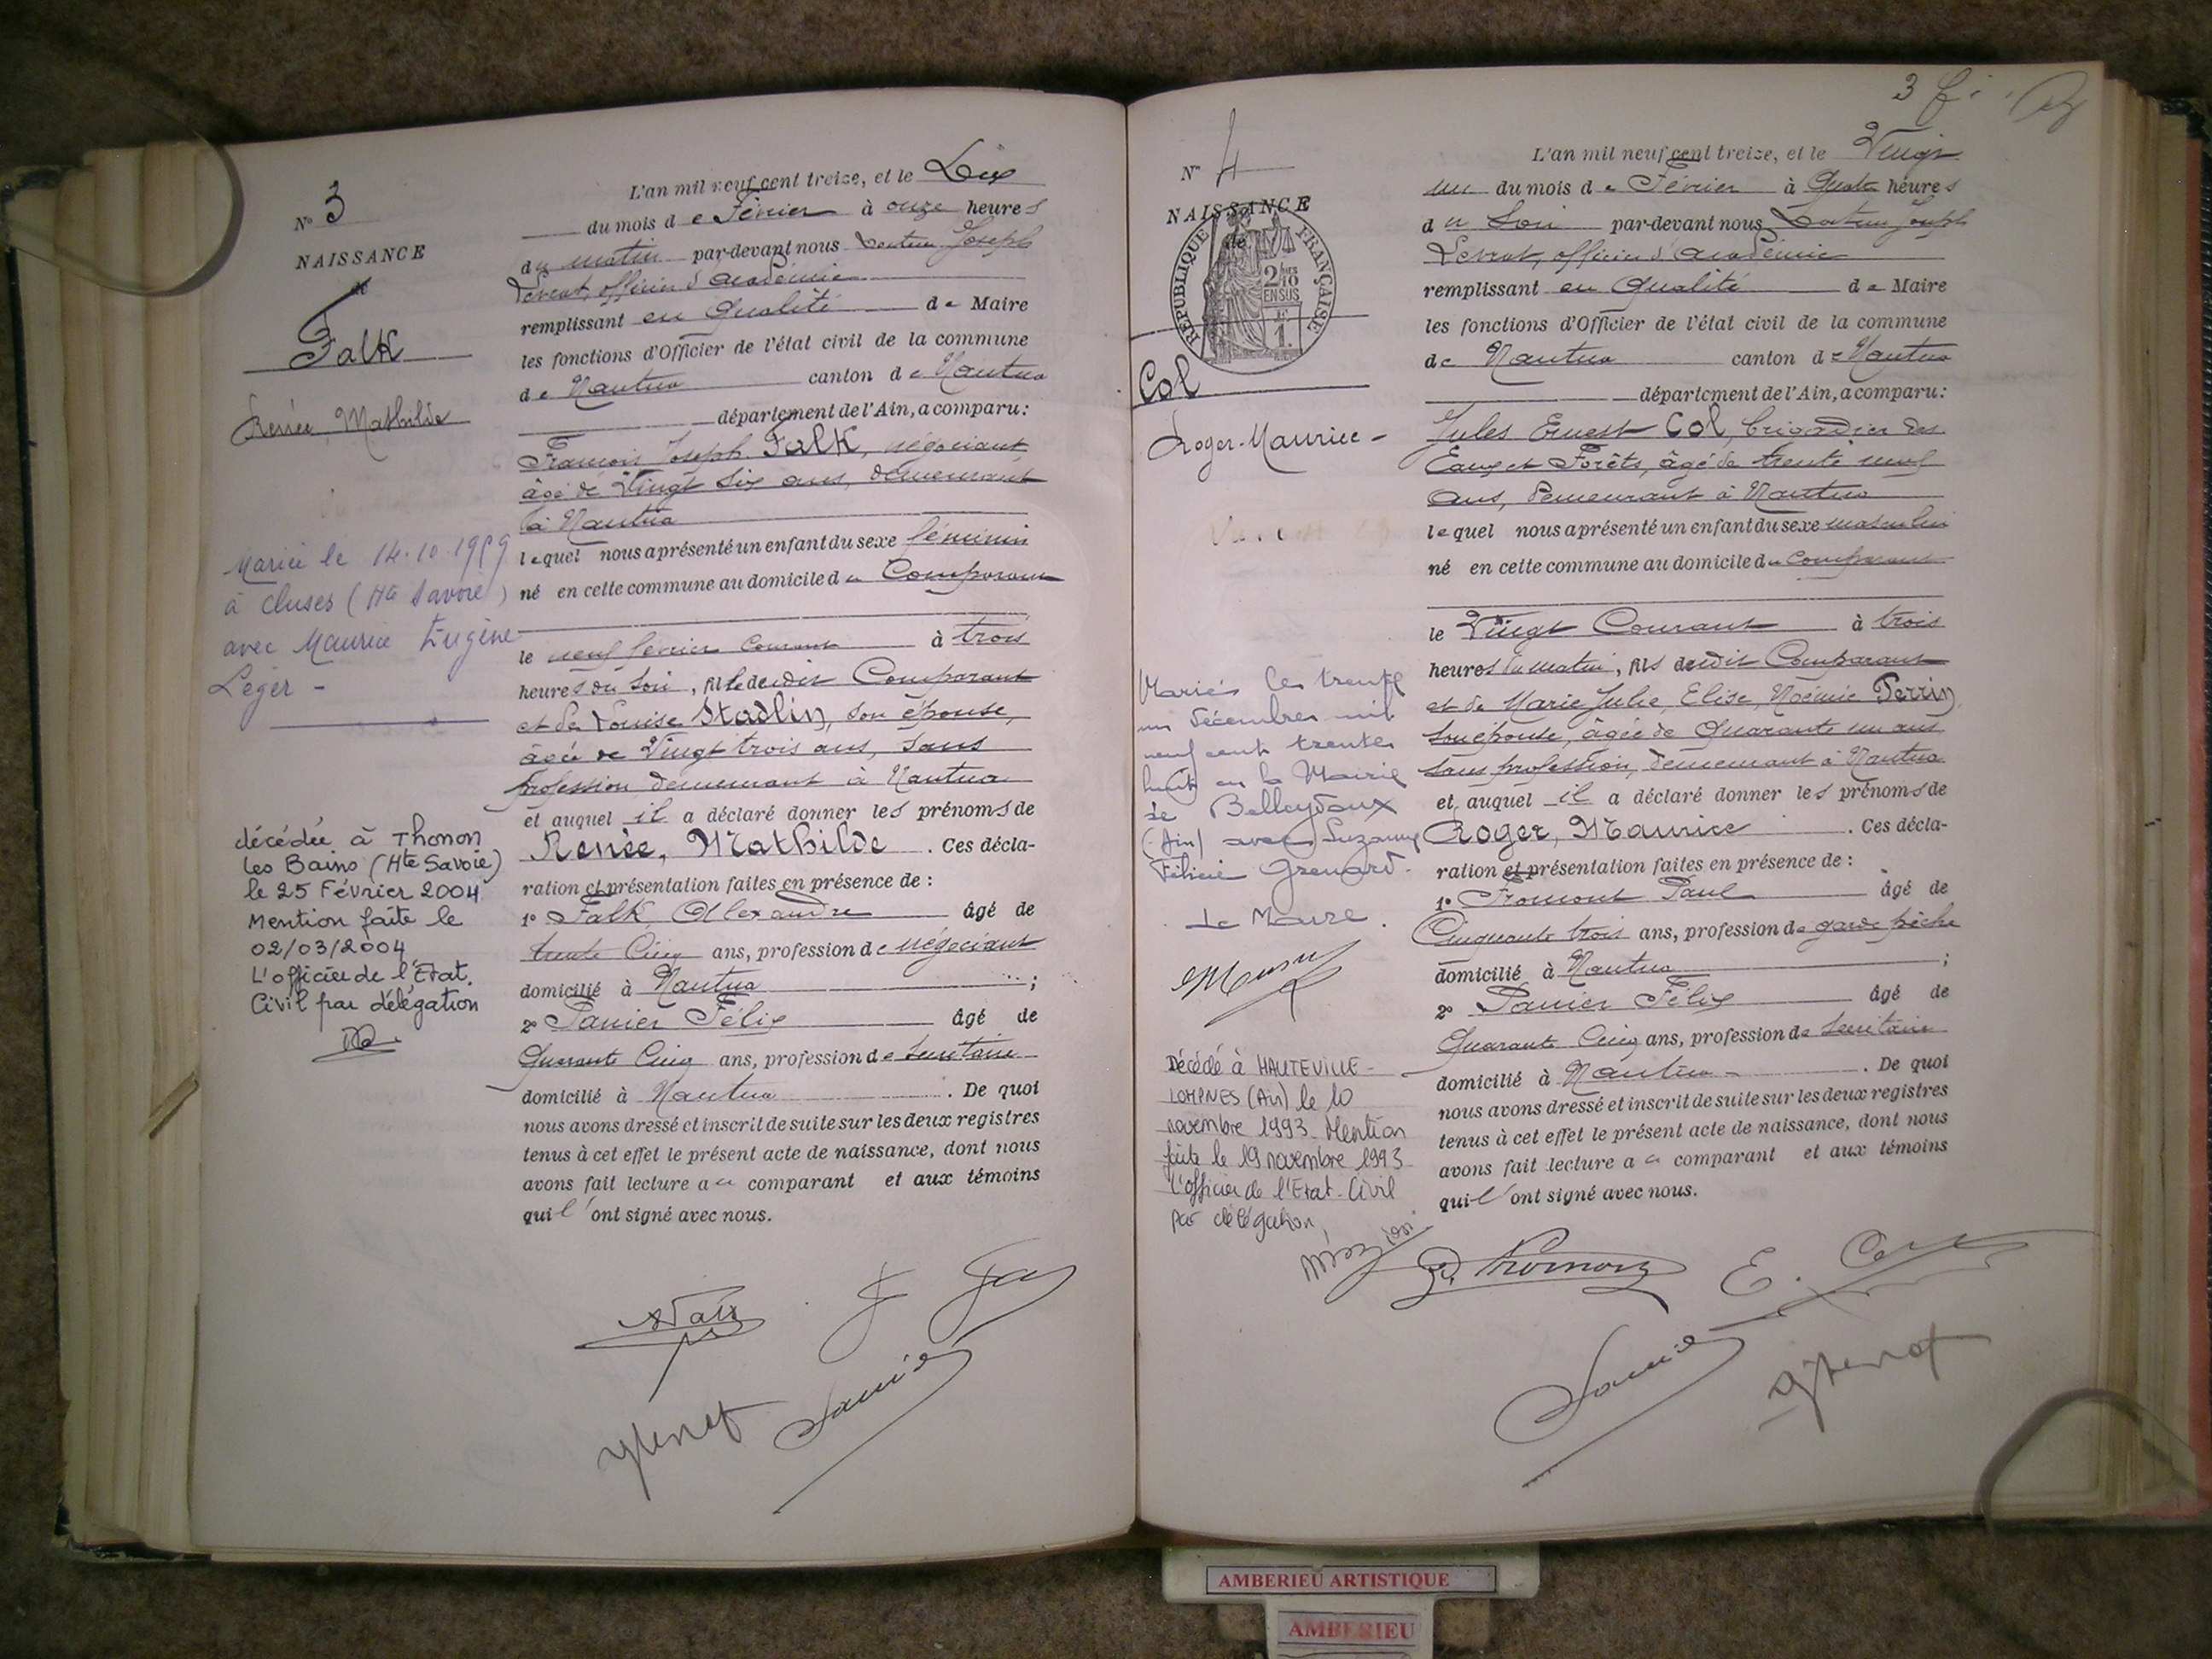 N° 3
NAISSANCE
de
Falk
Renée, Mathilde
Mariée le 14.10.1959
à Cluses (Hte Savoie)
avec Maurice Eugène
Léger -
décédée à Thonon
les Bains (Hte Savoie)
le 25 Février 2004
Mention faite le
02/03/2004
L'officier de l'Etat.
Civil par délégation
L'an mil neuf cent treize, et le Dix
du mois de Février à onze heures
du matin par-devant nous Docteur Joseph
Levrat, officier d'académie
remplissant en qualité de Maire
les fonctions d'Officier de l'état civil de la commune
de Nantua canton de Nantua
département de l'Ain, a comparu:
François Joseph Falk, négociant
âgé de Vingt six ans, demeurant
à Nantua
lequel nous a présenté un enfant du sexe féminin
né en cette commune au domicile du Comparant
le neuf février courant à trois
heures du soir, fille dudit Comparant
et de Louise Stadlin, son épouse,
âgée de Vingt trois ans, sans
profession, demeurant à Nantua
et auquel il a déclaré donner les prénoms de
Renée, Mathilde. Ces décla-
ration et présentation faites en présence de :
1° Falk Alexandre âgé de
trente Cinq ans, profession de négociant
domicilié à Nantua ;
2° Panier Félix âgé de
Quarante Cinq ans, profession de secrétaire
domicilié à Nantua. De quoi
nous avons dressé et inscrit de suite sur les deux registres
tenus à cet effet le présent acte de naissance, dont nous
avons fait lecture au comparant et aux témoins
qui l'ont signé avec nous.
Panier
3 f
N° 4
NAISSANCE
de
RÉPUBLIQUE FRANÇAISE
2/10
EN SUS
1.
Col
Roger-Maurice -
Marié le trente
un décembre mil
neuf cent trente
huit en la Mairie
de Belleydoux
(Ain) avec Suzanne
Félicie Grenard.
Le Maire.
Décédé à HAUTEVILLE-
LOMPNES (Ain) le 10
novembre 1993. Mention
faite le 19 novembre 1993
L'officier de l'Etat-Civil
par délégation,
L'an mil neuf cent treize, et le Vingt
un du mois de Février à Quatre heures
du Soir par-devant nous Docteur Joseph
Levrat, officier d'académie
remplissant en qualité de Maire
les fonctions d'Officier de l'état civil de la commune
de Nantua canton de Nantua
département de l'Ain, a comparu:
Jules Ernest Col, brigadier des
Eaux et Forêts, âgé de trente neuf
ans, demeurant à Nantua
lequel nous a présenté un enfant du sexe masculin
né en cette commune au domicile du comparant
le Vingt Courant à trois
heures du matin, fils dudit Comparant
et de Marie Julie, Elise, Noémie Perrin,
son épouse, âgée de Quarante un ans
sans profession, demeurant à Nantua
et auquel il a déclaré donner les prénoms de
Roger, Maurice. Ces décla-
ration et présentation faites en présence de :
1° Fromont Paul âgé de
Cinquante trois ans, profession de garde pêche
domicilié à Nantua ;
2° Panier Félix âgé de
Quarante Cinq ans, profession de secrétaire
domicilié à Nantua. De quoi
nous avons dressé et inscrit de suite sur les deux registres
tenus à cet effet le présent acte de naissance, dont nous
avons fait lecture au comparant et aux témoins
qui l'ont signé avec nous.
P. Fromont E. Col
Panier
AMBERIEU ARTISTIQUE
AMBERIEU